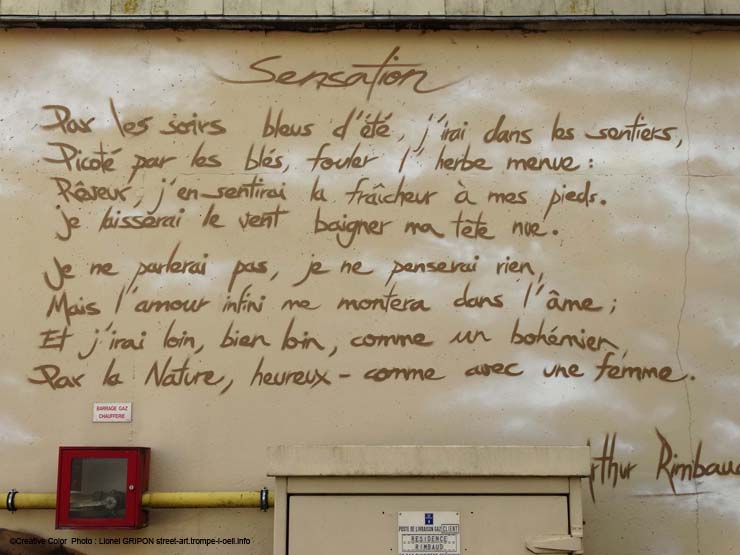 Sensation
Par les soirs bleus d'été, j'irai dans les sentiers,
Picoté par les blés, fouler l'herbe menue :
Rêveur, j'en sentirai la fraîcheur à mes pieds.
Je laisserai le vent baigner ma tête nue.
Je ne parlerai pas, je ne penserai rien,
Mais l'amour infini me montera dans l'âme ;
Et j'irai loin, bien loin, comme un bohémien,
Par la Nature, heureux - comme avec une femme.
Arthur Rimbaud
BARRAGE GAZ
CHAUFFERIE
POSTE DE LIVRAISON GAZ CLIENT
RESIDENCE
RIMBAUD
©Creative Color Photo : Lionel GRIPON street-art.trompe-l-oeil.info